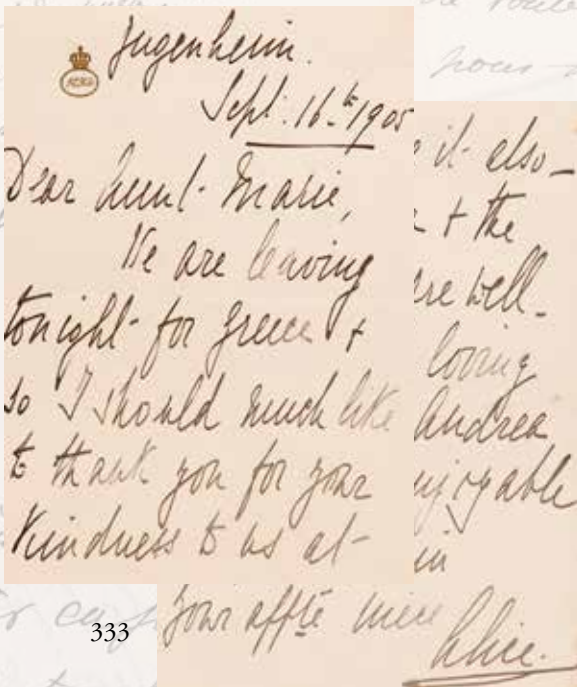 Jugenheim.
Sept: 16.th 1905
Dear Aunt Marie,
We are leaving
tonight for Greece +
so I should much like
to thank you for your
kindness to us at
it also
+ the
are well.
loving
Andrea
in
your affte niece
Alice.
333
pour